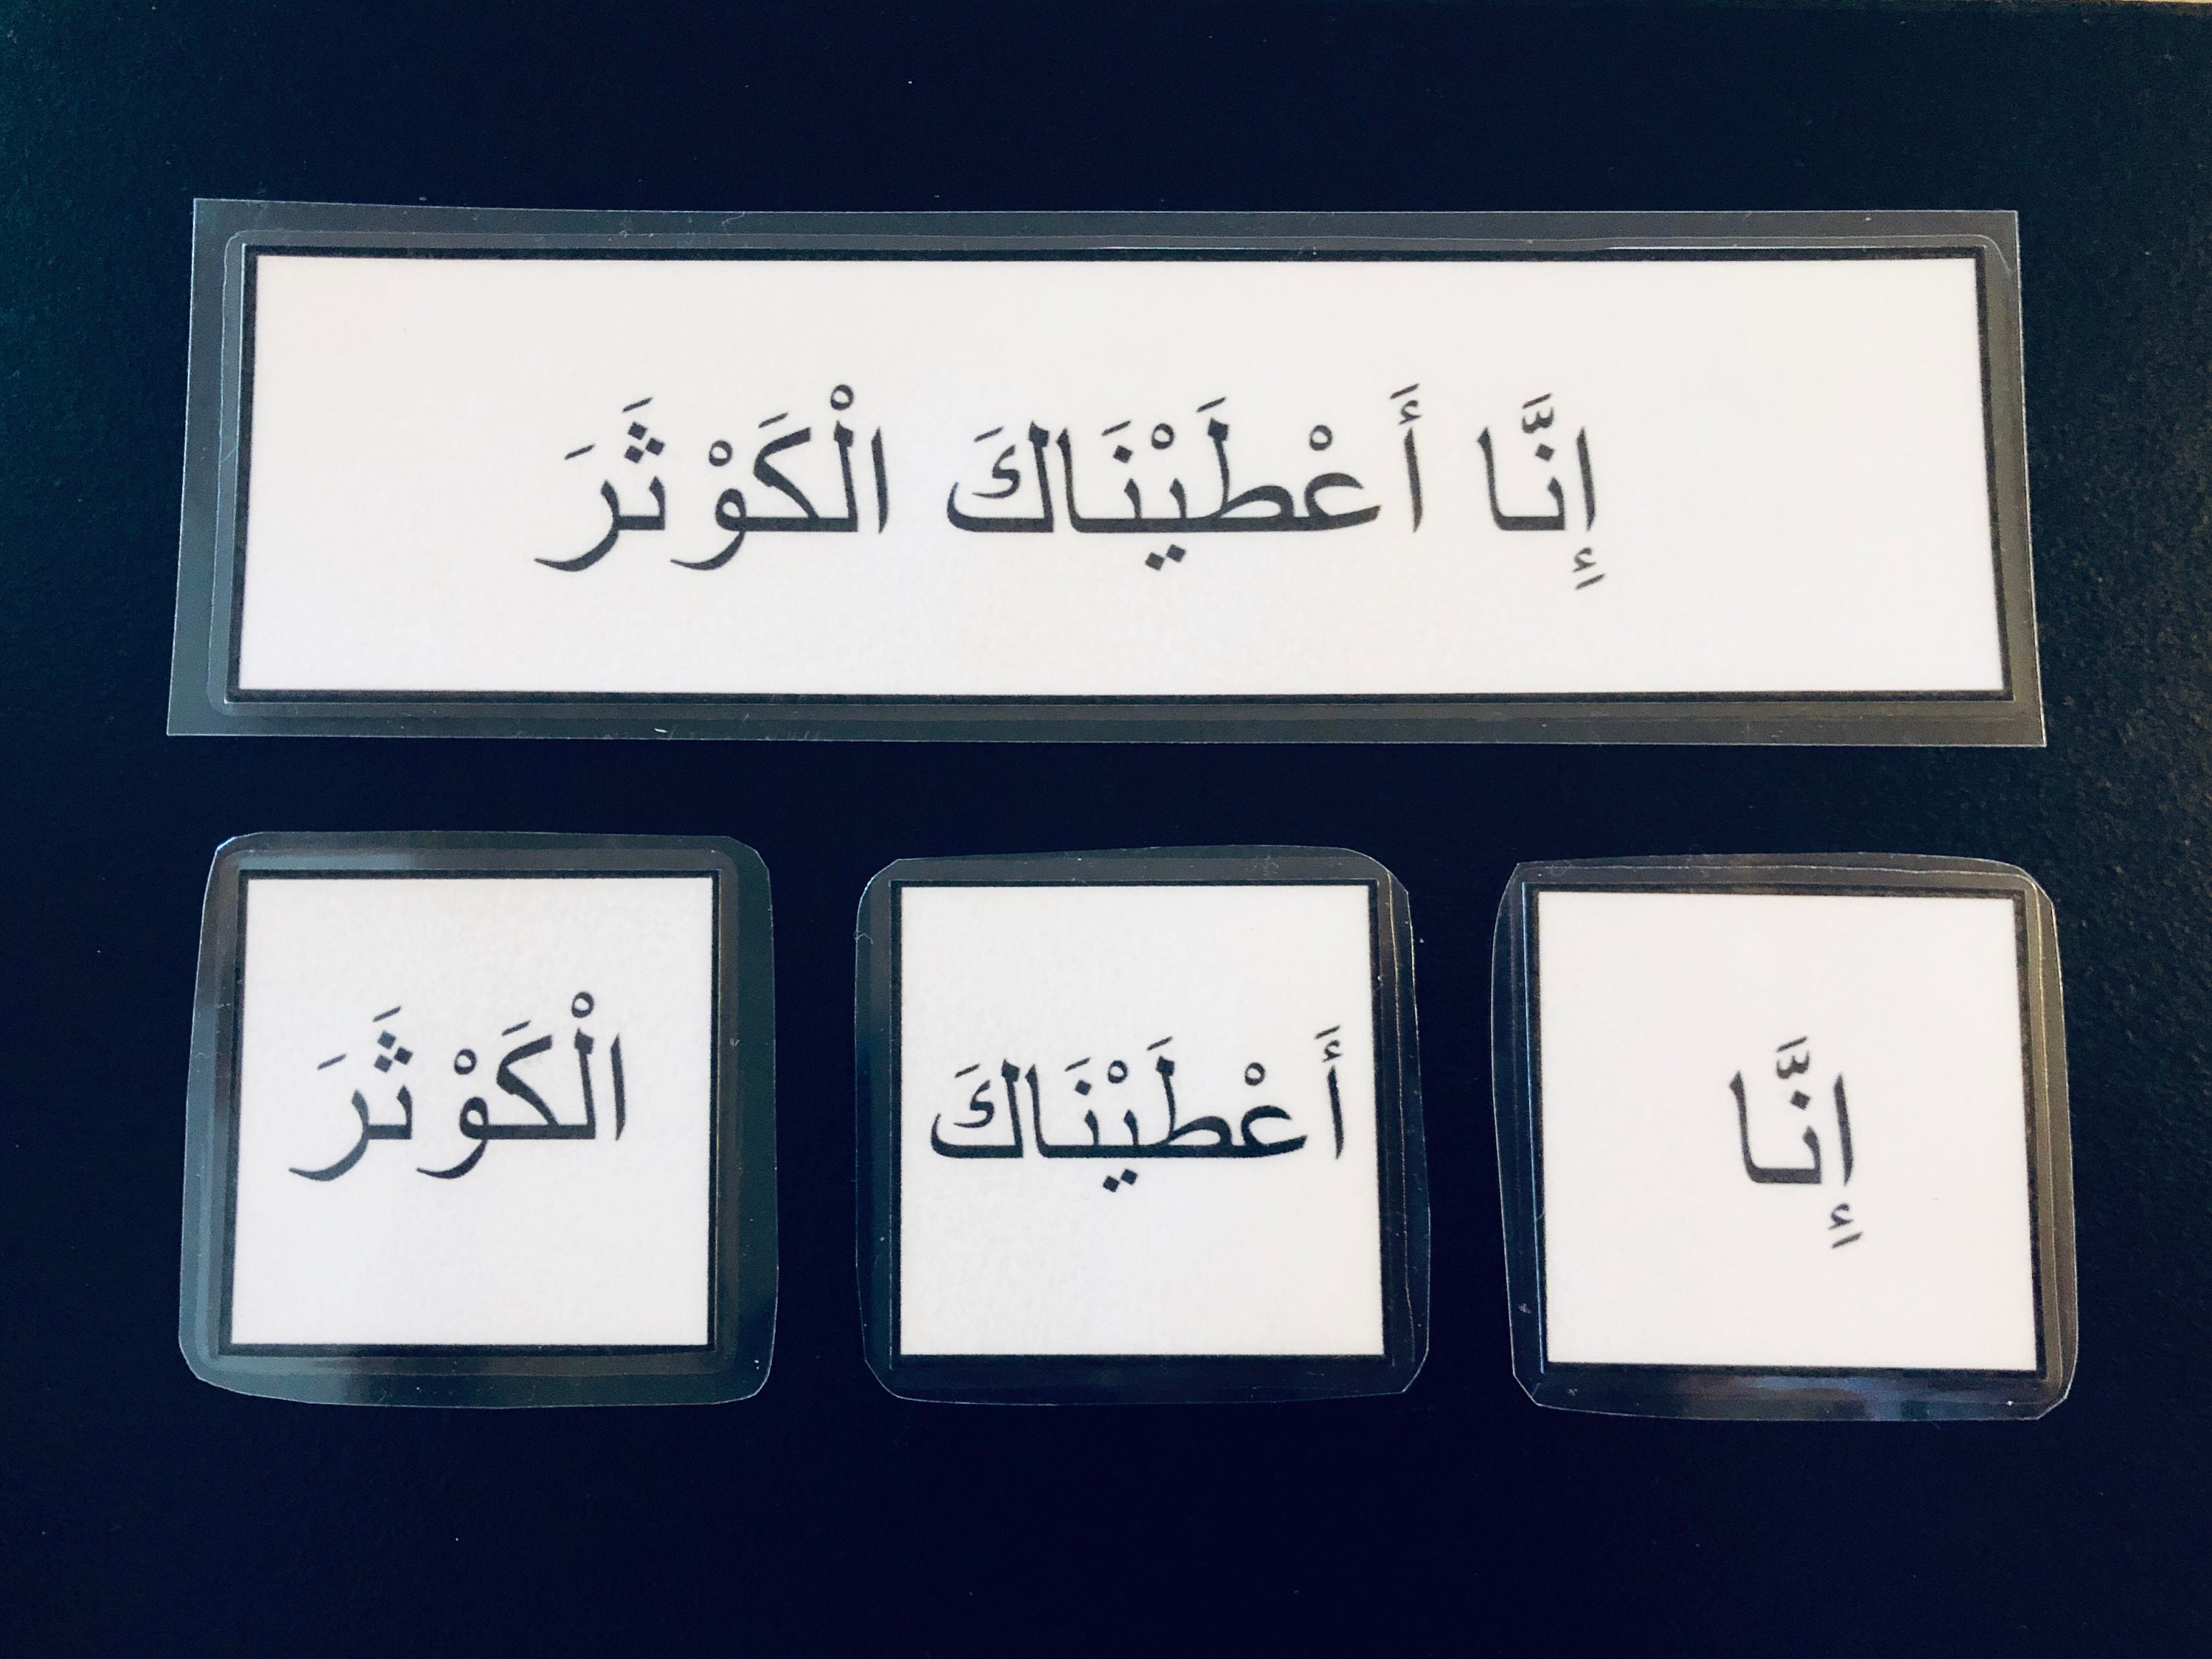 إِنَّا أَعْطَيْنَاكَ الْكَوْثَرَ
إِنَّا
أَعْطَيْنَاكَ
الْكَوْثَرَ